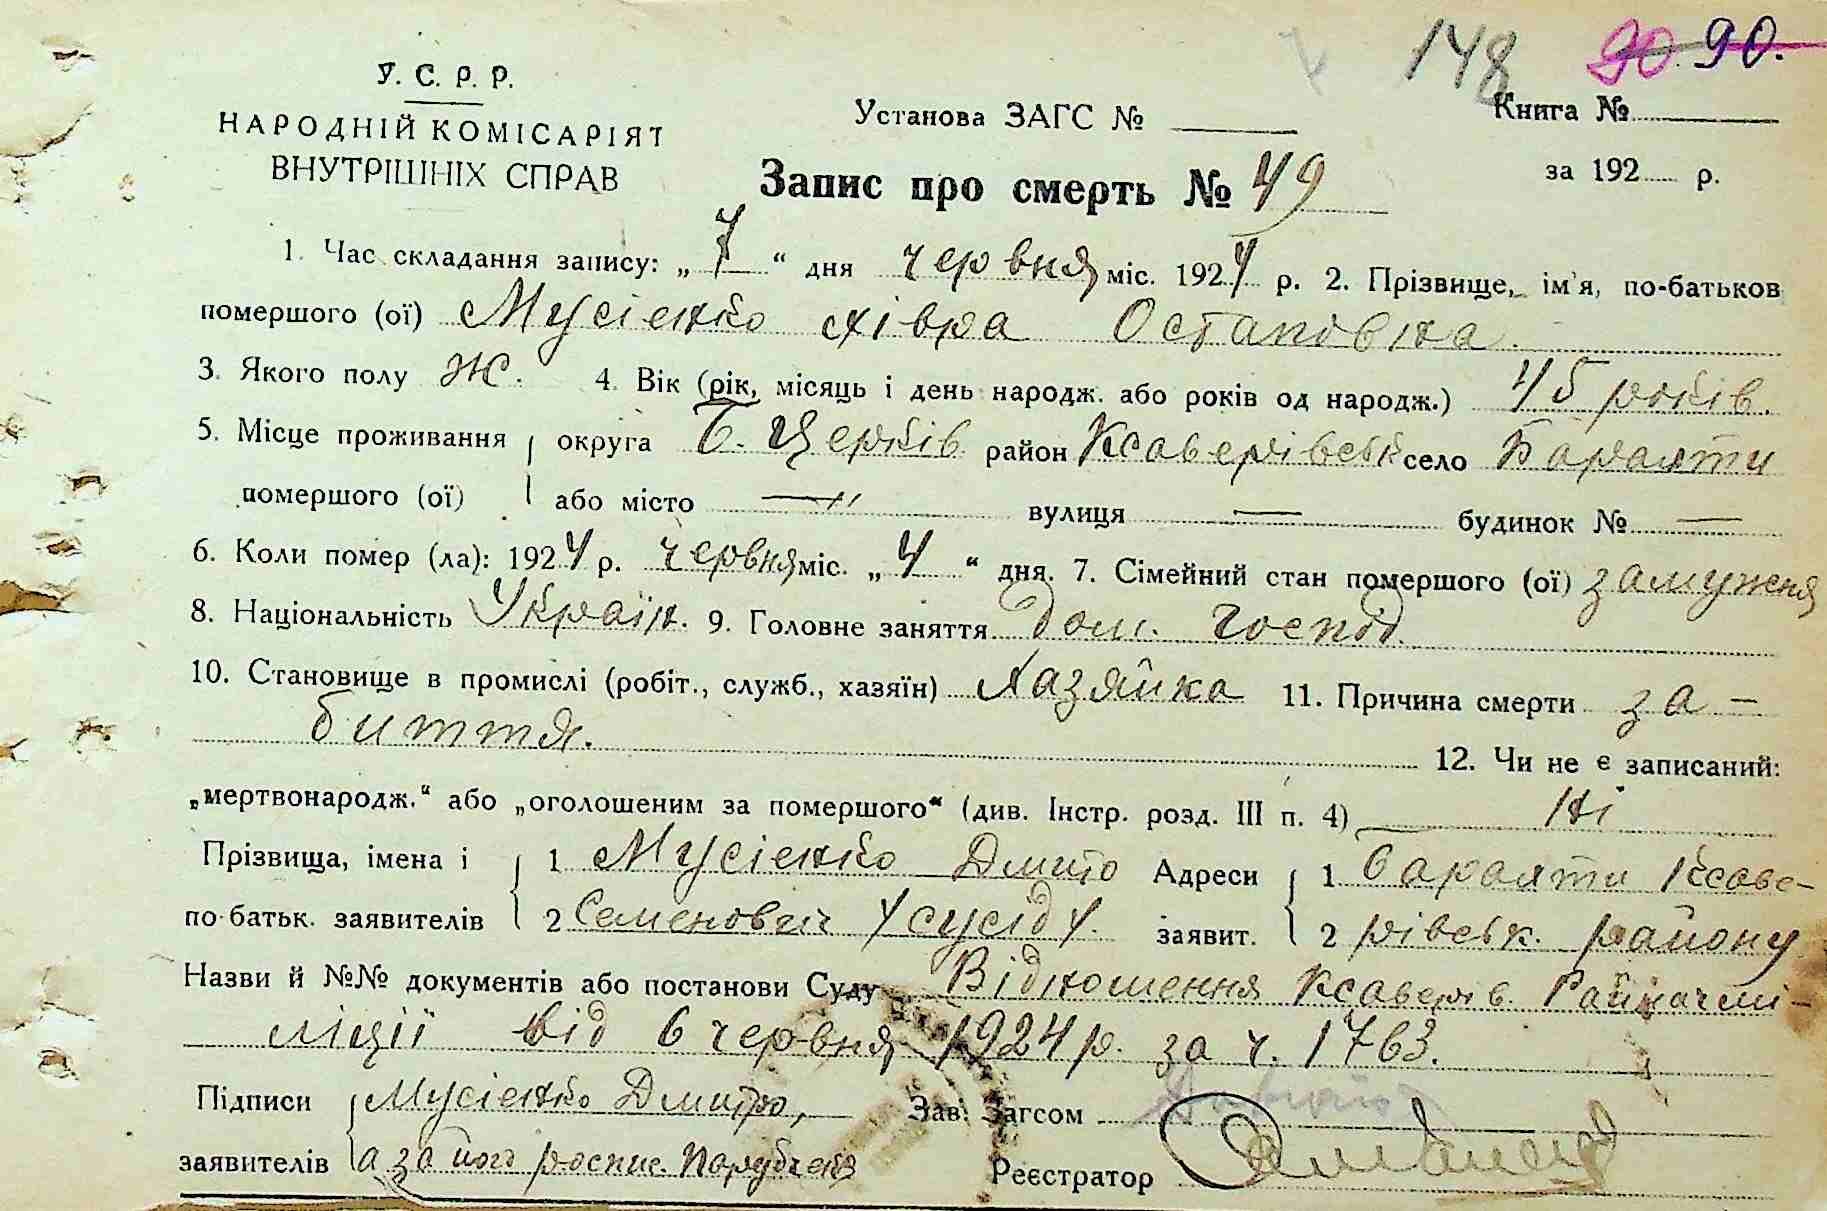 148 90. 90.
У. С. Р. Р.
НАРОДНІЙ КОМІСАРІЯТ
ВНУТРІШНІХ СПРАВ
Установа ЗАГС №
Книга №
за 192 р.
Запис про смерть № 49
1. Час складання запису: „ 7 “ дня червня міс. 1924 р. 2. Прізвище, ім'я, по-батьков
помершого (ої) Мусієнко Хівра Остаповна.
3. Якого полу Ж. 4. Вік (рік, місяць і день народж. або років од народж.) 45 років.
5. Місце проживання округа Б. Церків район Ксаверівськ село Барахти
помершого (ої) або місто — „ вулиця — будинок № —
6. Коли помер (ла): 1924 р. червня міс. „ 4 “ дня. 7. Сімейний стан помершого (ої) замужня
8. Національність Україн. 9. Головне заняття дом. господ.
10. Становище в промислі (робіт., служб., хазяїн) Хазяйка 11. Причина смерти за-
биття. 12. Чи не є записаний:
„мертвонародж.“ або „оголошеним за помершого“ (див. Інстр. розд. III п. 4) Ні
Прізвища, імена і 1 Мусієнко Дмитро Адреси 1 Барахти Ксаве-
по-батьк. заявителів 2 Семенович заявит. 2 рівськ. району
Назви й №№ документів або постанови Суду Відношення Ксаверів. Райначмі-
ліції від 6 червня 1924 р. за ч. 1763.
Підписи Мусієнко Дмитро, Зав. Загсом
заявителів а за його роспис. Реєстратор